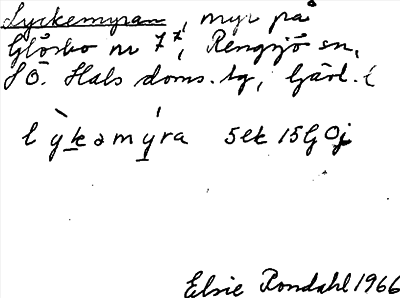 Lyckemyran, myr på
Glösbo nr 7⁷, Rengsjö sn,
SÖ. Häls doms. tg, Gävl. l
l ỳ k ə m ý ra 5ek 15G 0j
Elsie Rondahl 1966